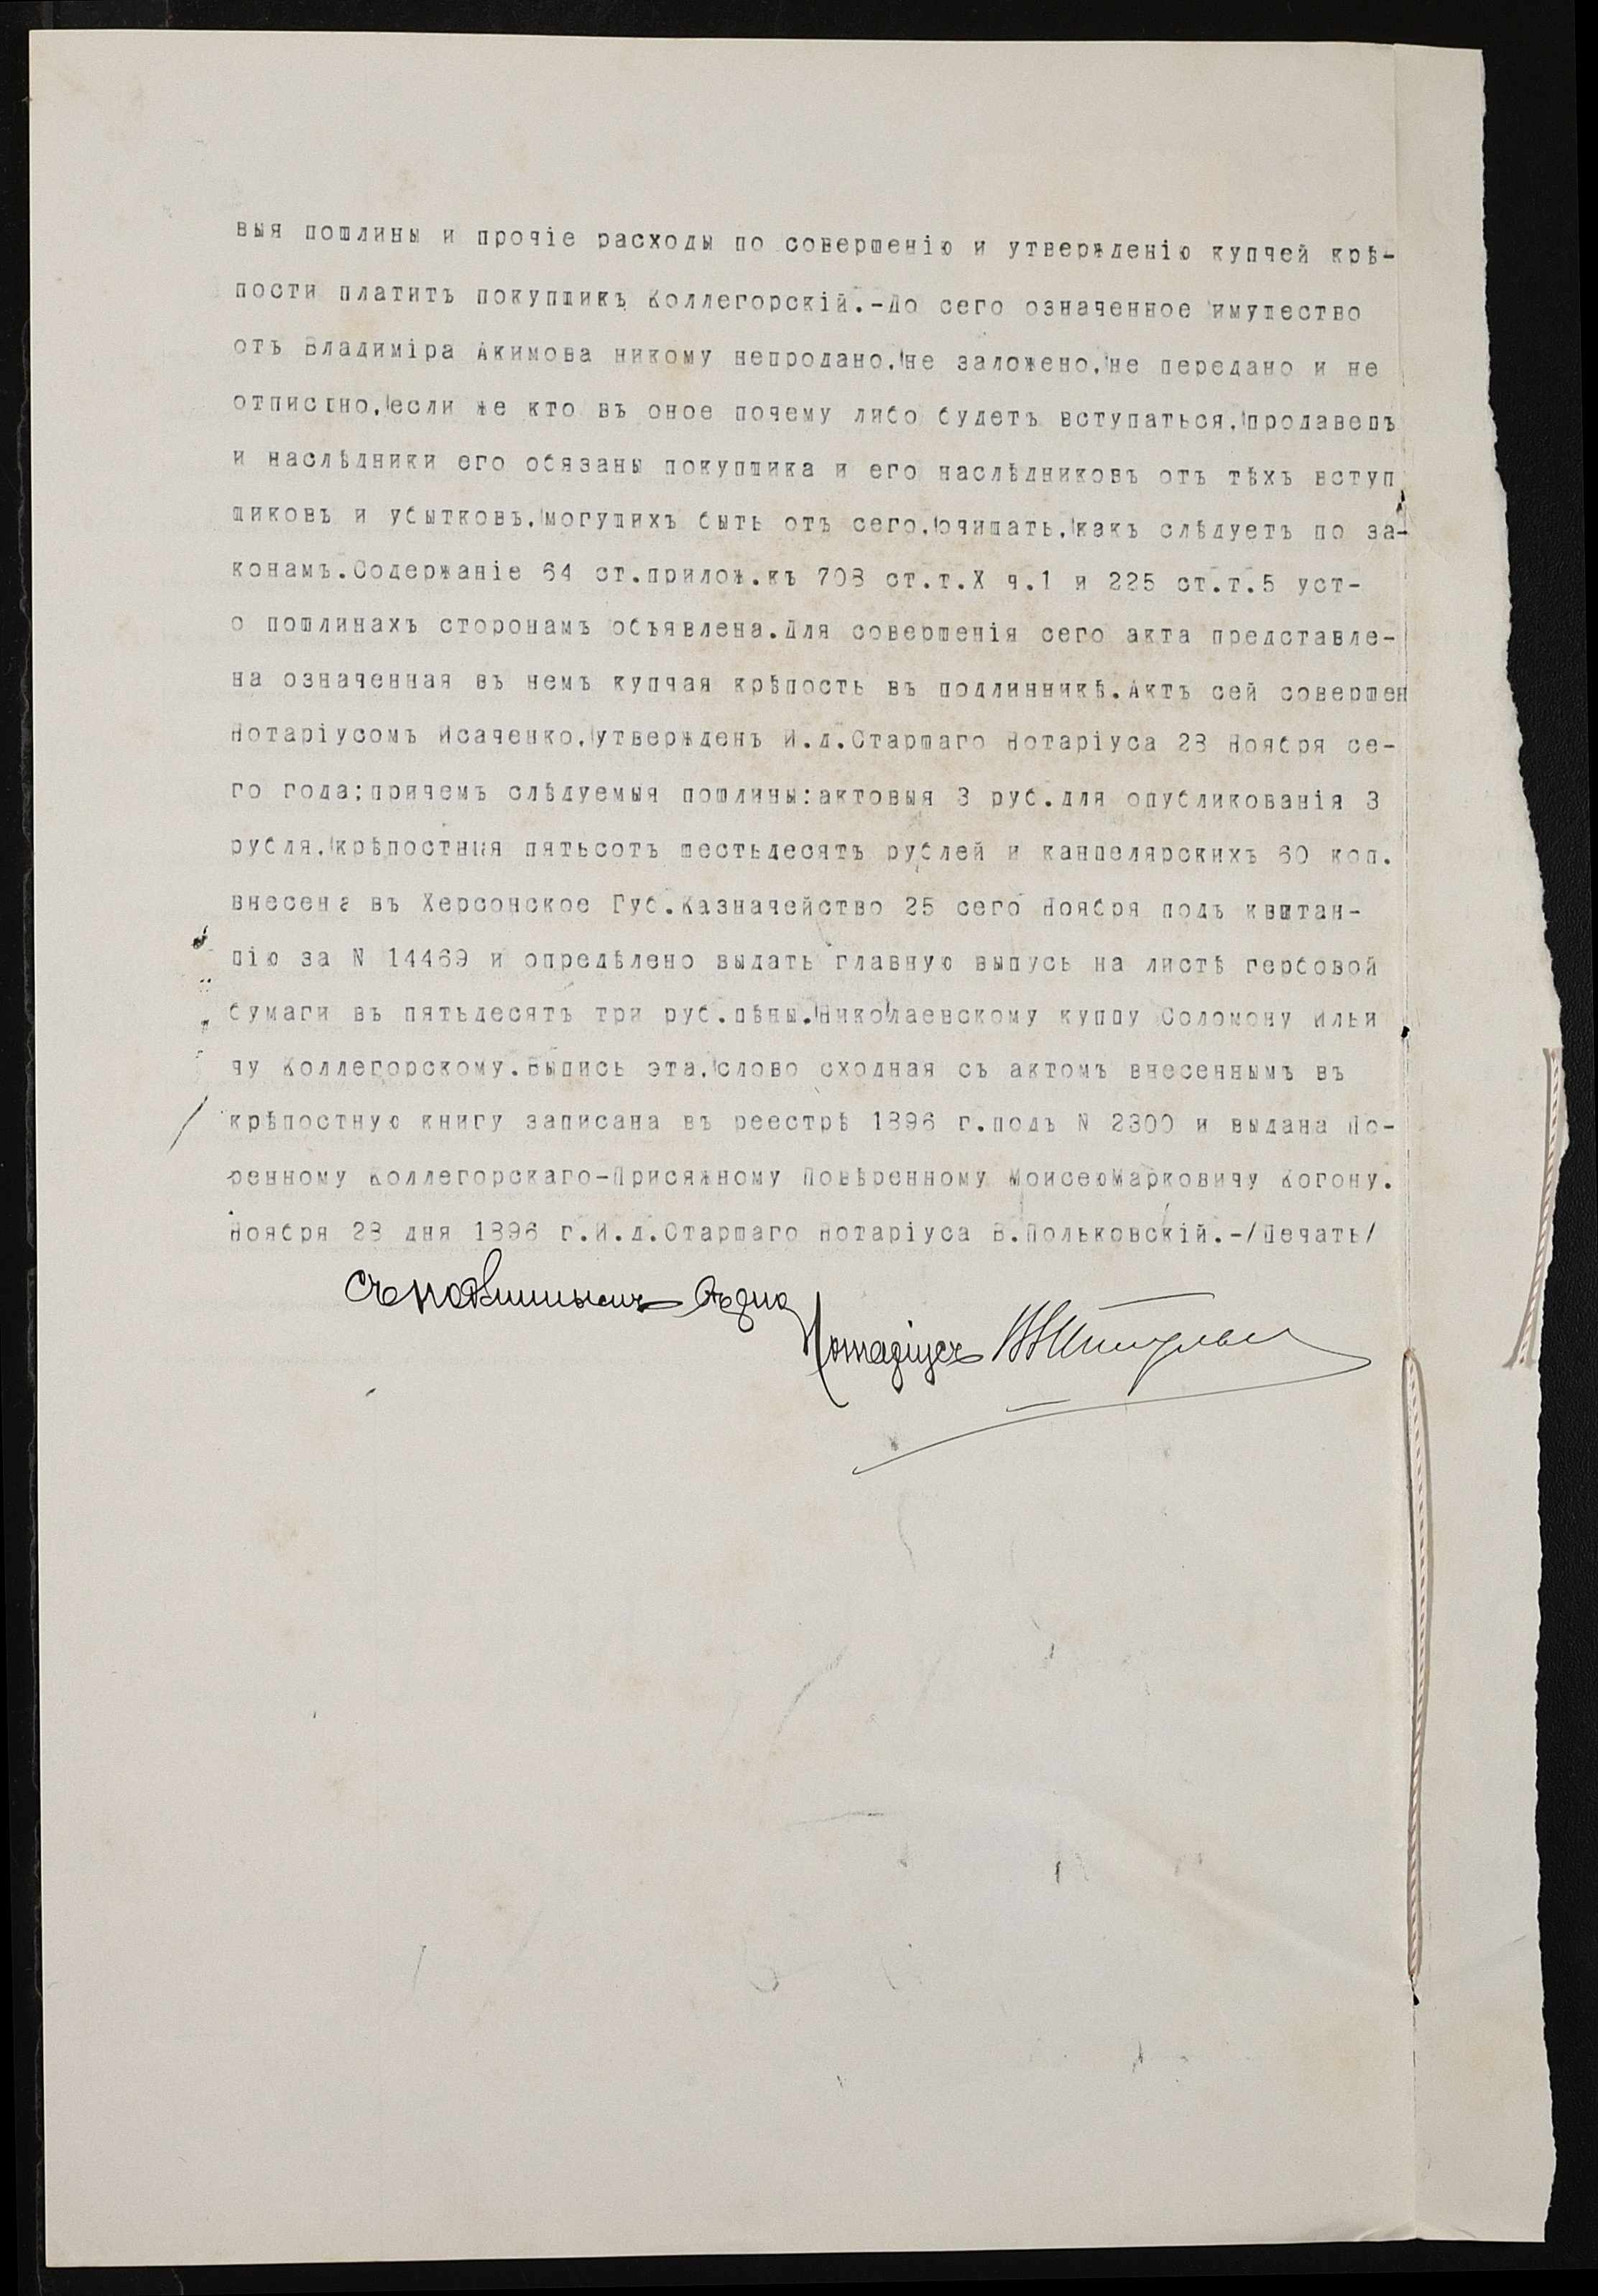 выя пошлины и прочіе расходы по совершенію и утвержденію купчей крѣ-
пости платитъ покупщикъ Коллегорскій.-До сего означенное имущество
отъ Владиміра Акимова никому непродано, не заложено, не передано и не
отписано, если же кто въ оное почему либо будетъ вступаться, продавецъ
и наслѣдники его обязаны покупщика и его наслѣдниковъ отъ тѣхъ вступ
щиковъ и убытковъ, могущихъ быть отъ сего, очищать, какъ слѣдуетъ по за-
конамъ.Содержаніе 64 ст.прилож.къ 708 ст.т.X ч.1 и 225 ст.т.5 уст-
о пошлинахъ сторонамъ объявлена.Для совершенія сего акта представле-
на означенная въ немъ купчая крѣпость въ подлинникѣ.Актъ сей совершен
Нотаріусомъ Исаченко, утвержденъ И.д.Старшаго Нотаріуса 28 Ноября се-
го года;причемъ слѣдуемыя пошлины:актовыя 3 руб.для опубликованія 3
рубля, крѣпостныя пятьсотъ шестьдесятъ рублей и канцелярскихъ 60 коп.
внесена въ Херсонское Губ.Казначейство 25 сего Ноября подъ квитан-
цію за N 14469 и опредѣлено выдать главную выпусь на листѣ гербовой
бумаги въ пятьдесятъ три руб.цѣны, Николаевскому купцу Соломону Ильи
чу Коллегорскому.Выпись эта, слово сходная съ актомъ внесеннымъ въ
крѣпостную книгу записана въ реестрѣ 1896 г.подъ N 2300 и выдана По-
ренному Коллегорскаго-Присяжному Повѣренному МоисеюМарковичу Когону.
Ноября 28 дня 1896 г.И.д.Старшаго Нотаріуса В.Польковскій.-/Печать/
Съ подлиннымъ вѣрно
Нотаріусъ